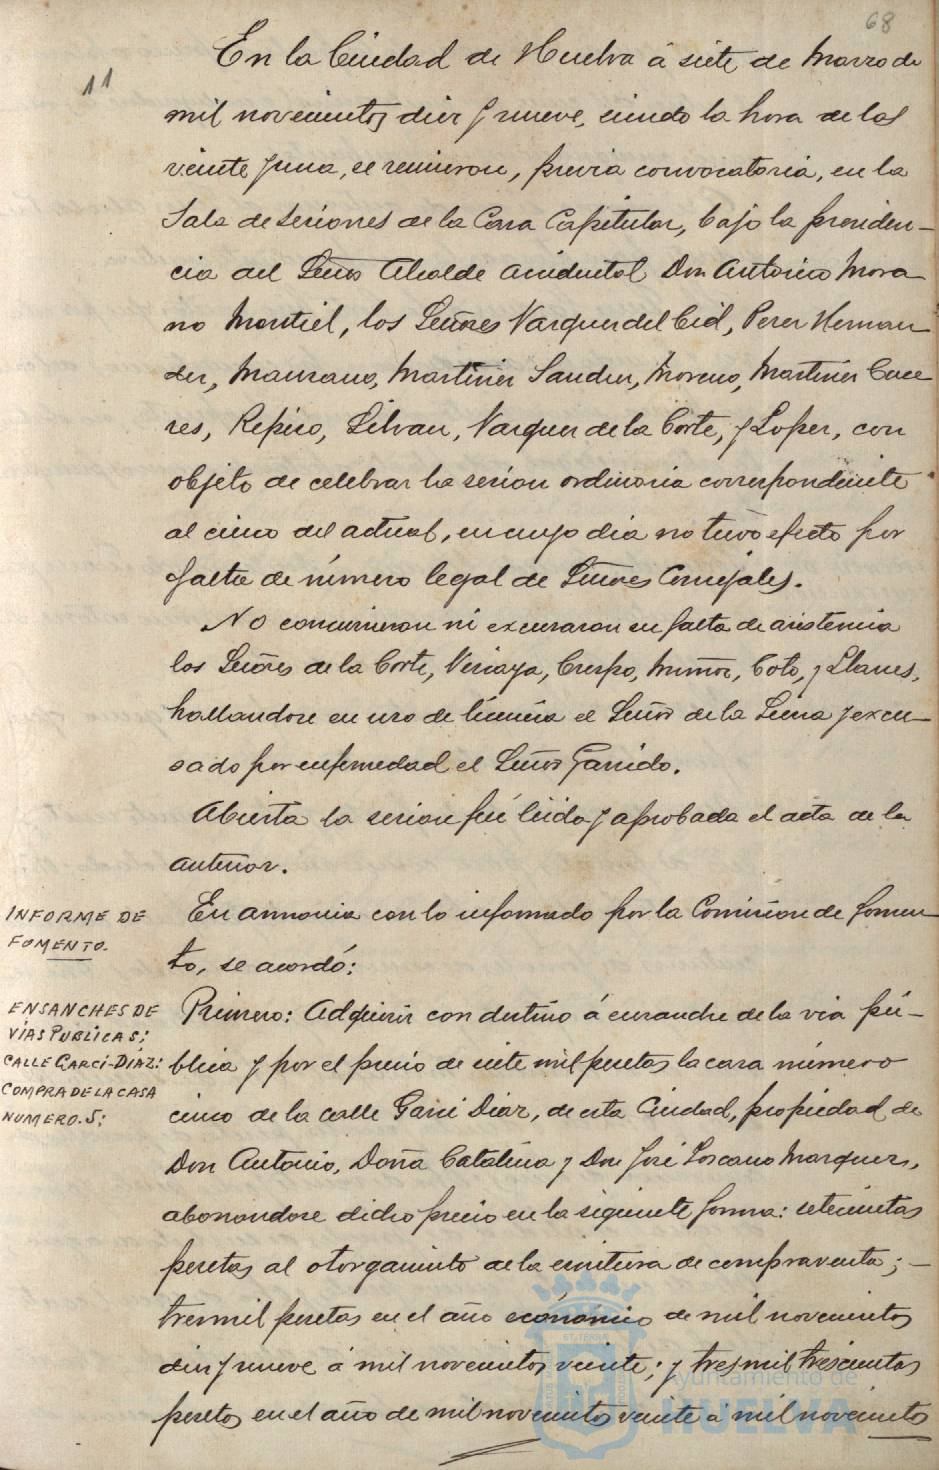 68
11
En la Ciudad de Huelva á siete de Marzo de
mil novecientos diez y nueve, siendo la hora de las
veinte y una, se reunieron, previa convocatoria, en la
Sala de Sesiones de la Casa Capitular, bajo la presiden-
cia del Señor Alcalde accidental Don Antonio Mora
no Montiel, los Señores Vazquez del Cid, Perez Hernan-
dez, Manzano, Martinez Sanchez, Moreno, Martinez Cace
res, Repiso, Silvan, Vazquez de la Corte, y Lopez, con
objeto de celebrar la sesion ordinaria correspondiente
al cinco del actual, en cuyo dia no tuvo efecto por
falta de número legal de Señores Concejales.
No concurrieron ni excusaron su falta de asistencia
los Señores de la Corte, Vizcaya, Crespo, Muñoz, Coto, y Llanes,
hallandose en uso de licencia el Señor de la Luna y excu-
sado por enfermedad el Señor Garrido.
Abierta la sesion fué leida y aprobada el acta de la
anterior.
INFORME DE
FOMENTO.
En armonia con lo informado por la Comision de Fomen-
to, se acordó:
ENSANCHES DE
VÍAS PUBLICAS;
CALLE GARCI-DIAZ:
COMPRA DE LA CASA
NUMERO. 5;
Primero: Adquirir con destino á ensanche de la via pú-
blica y por el precio de siete mil pesetas la casa número
cinco de la calle Garci Diaz, de esta Ciudad, propiedad de
Don Antonio, Doña Catalina y Don José Loscano Marquez,
abonandose dicho precio en la siguiente forma: setecientas
pesetas al otorgamiento de la escritura de compraventa; -
tres mil pesetas en el año económico de mil novecientos
diez y nueve á mil novecientos veinte; y tres mil trescientas
pesetas en el año de mil novecientos veinte á mil novecientos
Ayuntamiento de
HUELVA